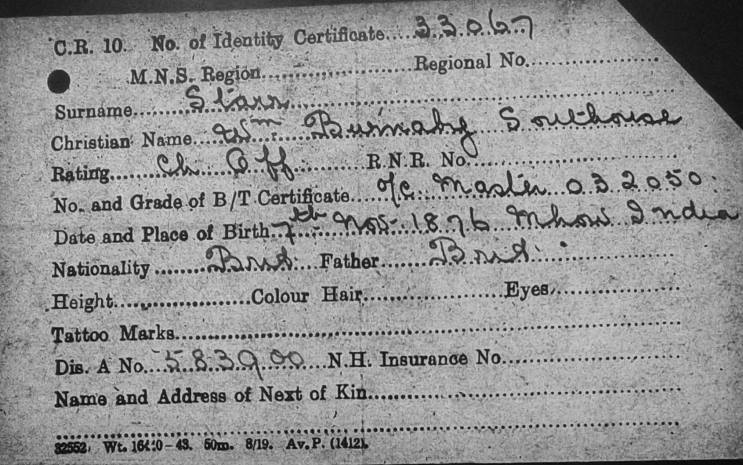 C.R. 10. No. of Identity Certificate....33067
M.N.S. Region....................Regional No.....................
Surname........Starr
Christian Name....Wm. Burnaby Southouse
Rating......Ch. Off..........R.N.R. No.
No. and Grade of B/T Certificate....o/c Master 032050.
Date and Place of Birth..7th Nov. 1876 Mhow India
Nationality.......Brit. Father......Brit.
Height....................Colour Hair....................Eyes....................
Tattoo Marks....................
Dis. A No....583900....N.H. Insurance No....................
Name and Address of Next of Kin....................
32552. Wt. 16410-43. 50m. 8/19. Av.P. (1412).